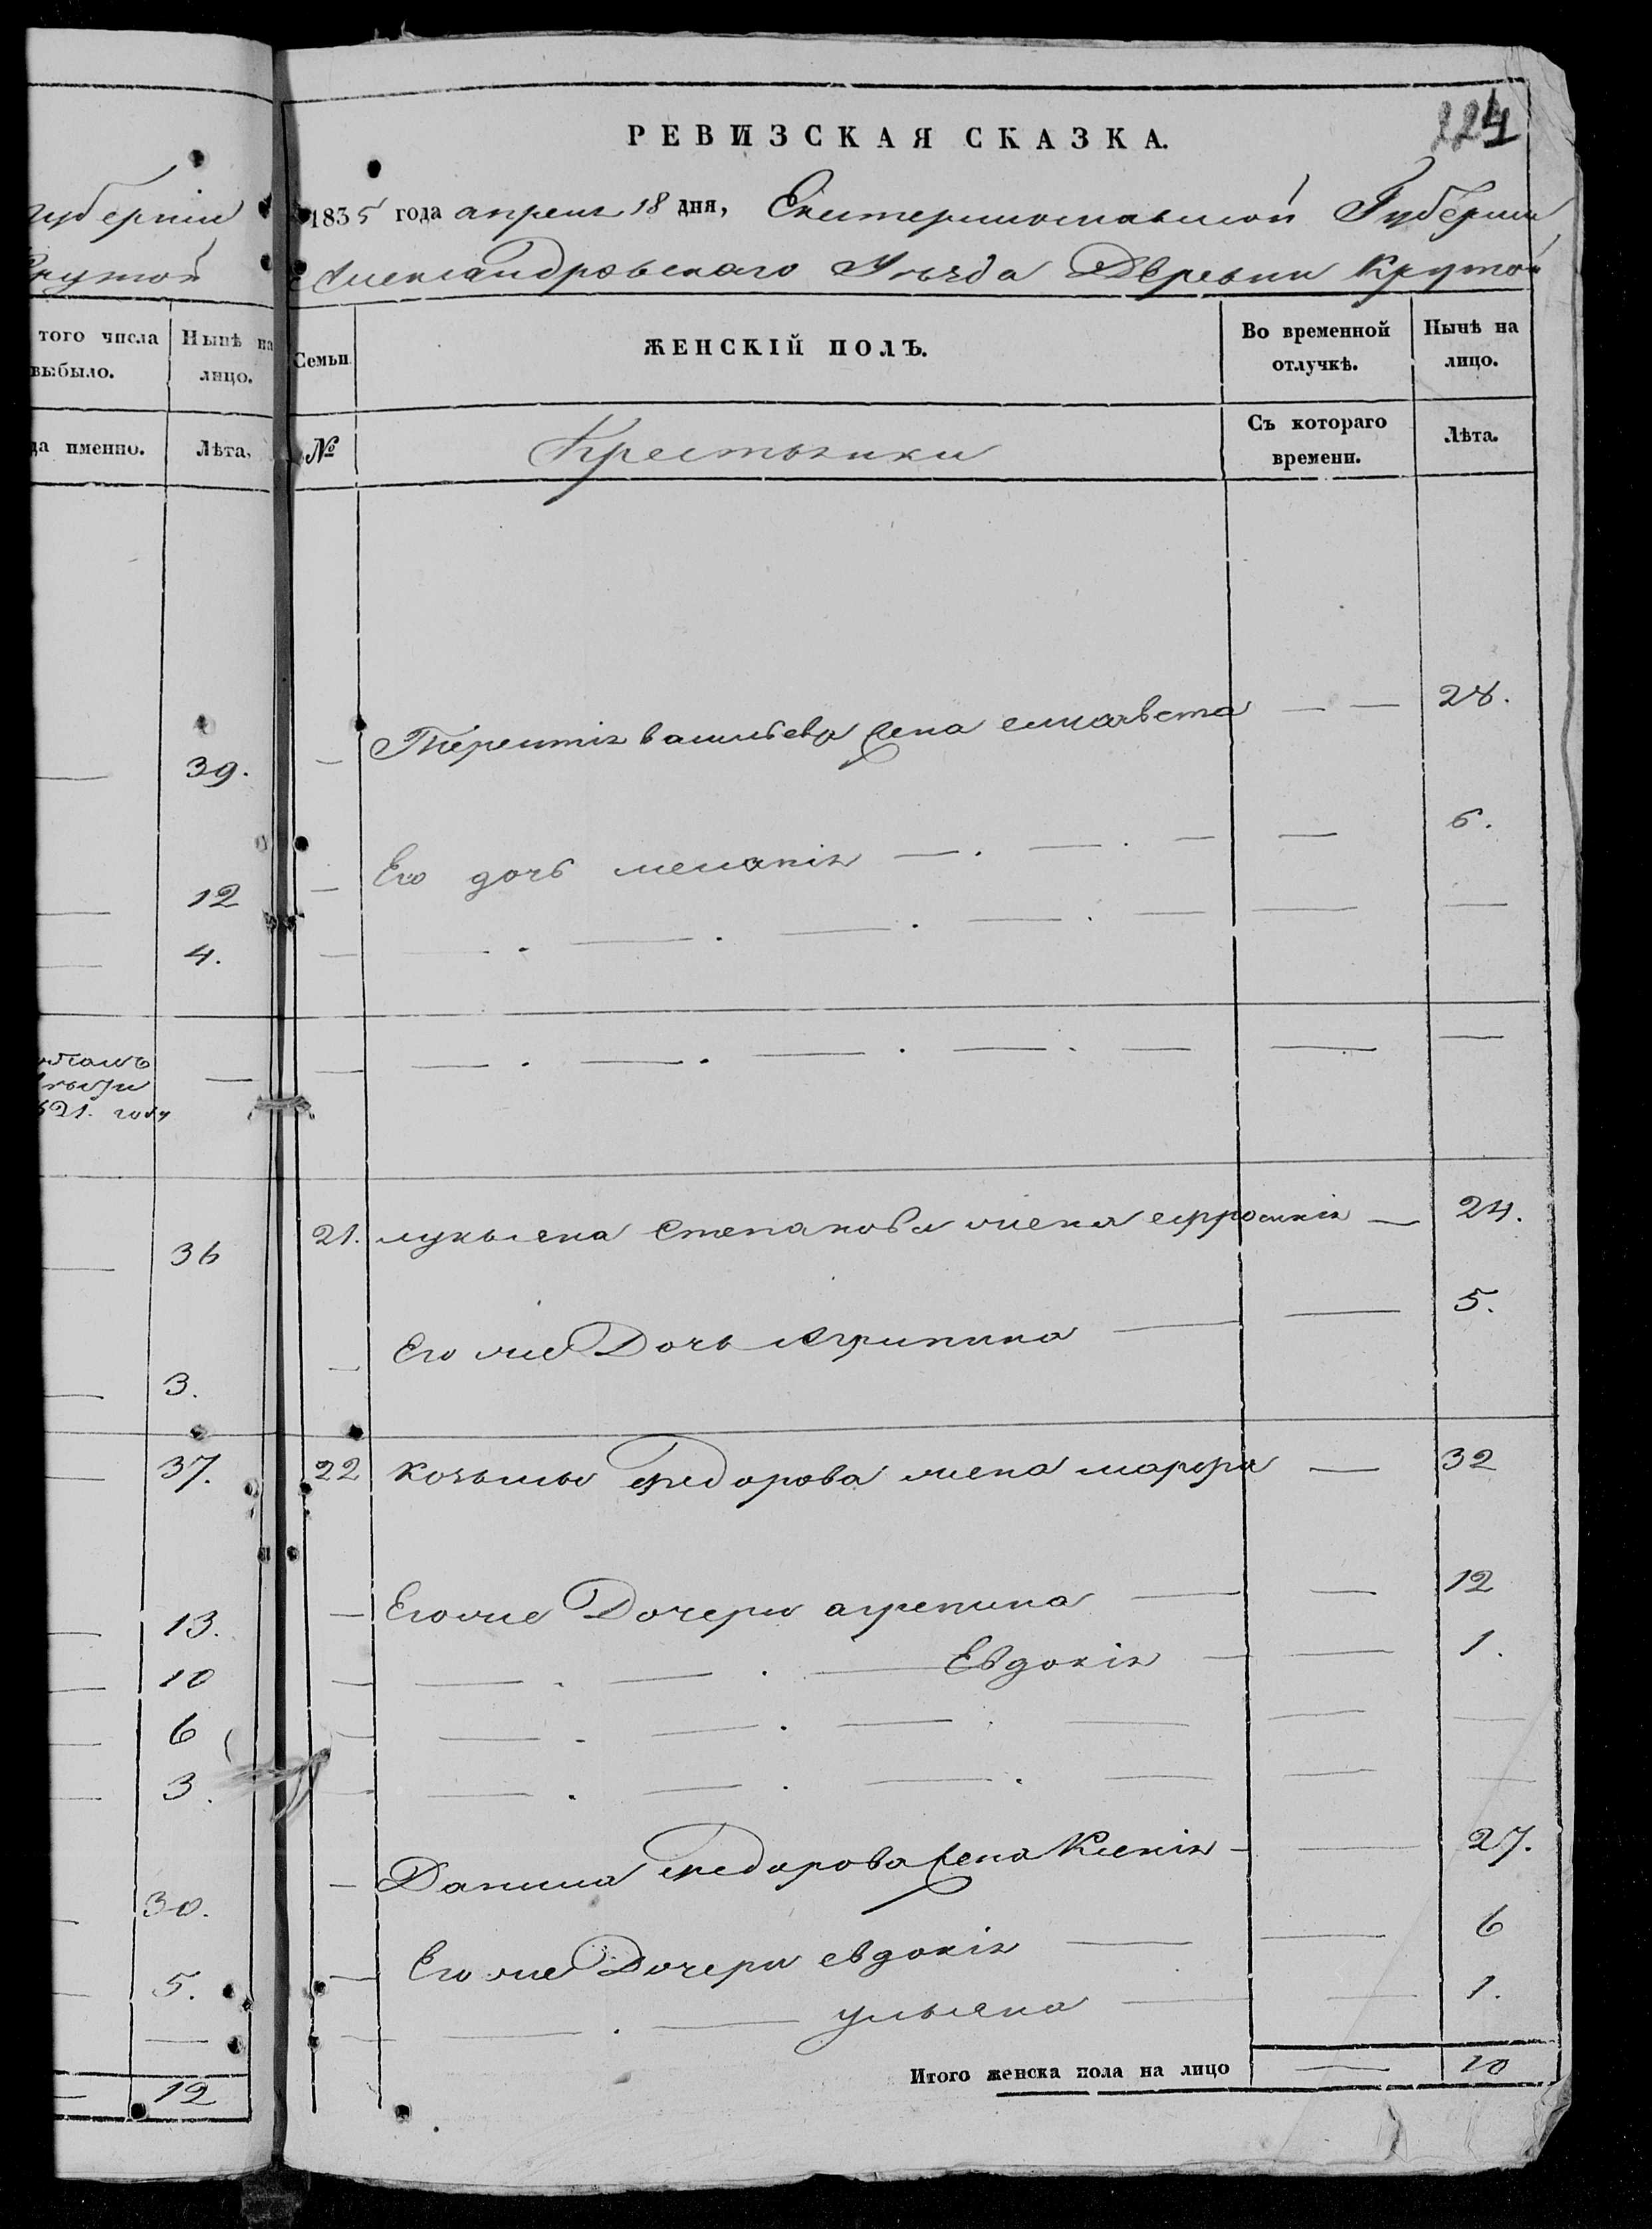 губернии
Крутой
того числа
выбыло.
Нынѣ на
лицо.
да именно.
Лѣта.
39.
12
4.
621. году
36
3.
37.
13.
10
6
3.
30.
5.
12
224
РЕВИЗСКАЯ СКАЗКА.
1835 года апреля 18 дня, Екатеринославской Губернии
Александровскаго Уѣзда Деревни Крутой
Семьи
ЖЕНСКІЙ ПОЛЪ.
Во временной
отлучкѣ.
Нынѣ на
лицо.
№
Крестьянки
Съ котораго
времени.
Лѣта.
Терентія васильева жена елисавета — — 28.
Его дочь меланія — . — . — — 6.
21. лукьяна степанова жена ефросинія — 24.
Его же Дочь Агрипина — — 5.
22 козьмы федорова жена марфа — 32
Его же Дочери агрепина — — 12
Евдокія — — 1.
Данила федорова жена Ксенія — — 27.
Его же Дочери евдокія — — 6
ульяна — — 1.
Итого женска пола на лицо — 10